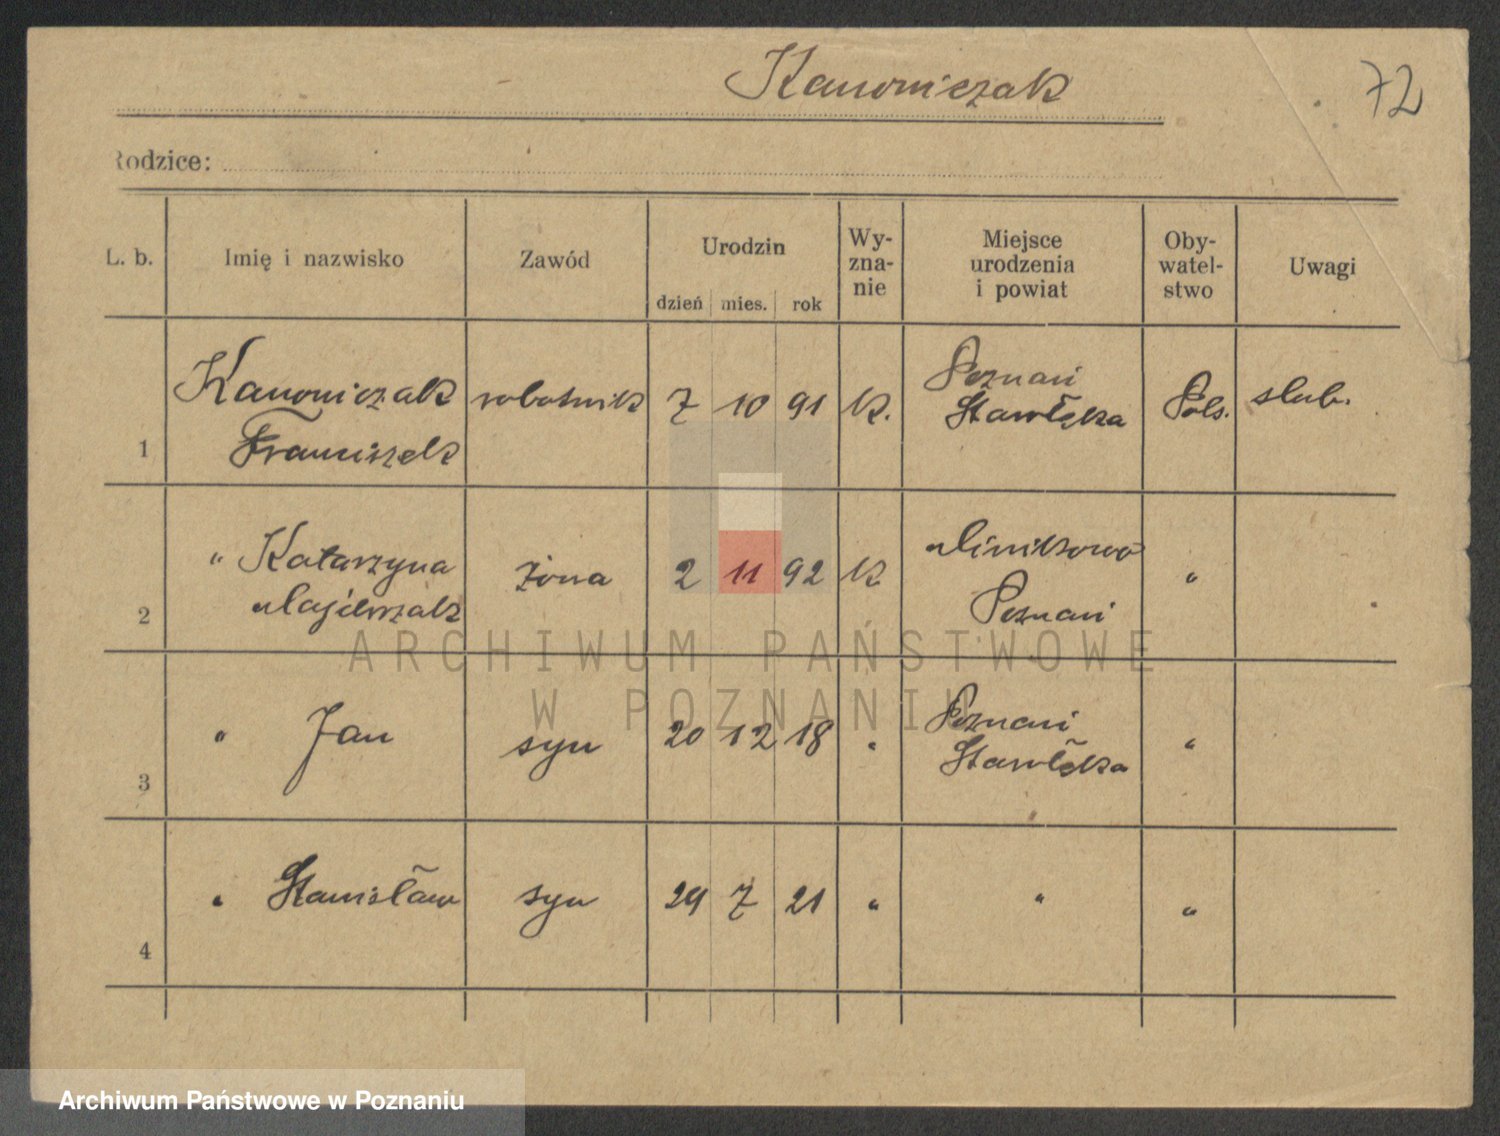 Kanoniczak
72
Rodzice:
L. b. Imię i nazwisko Zawód Urodzin dzień mies. rok Wy-zna-nie Miejsce urodzenia i powiat Oby-watel-stwo Uwagi
1 Kanoniczak robotnik 7 10 91 K. Poznań Pols. slub.
Franciszek Stawłęka
2 " Katarzyna żona 2 11 92 K Minikowo "
Majerzak Poznań
ARCHIWUM PAŃSTWOWE
W POZNANIU
3 " Jan syn 20 12 18 " Poznań "
Stawłęka
4 " Stanisław syn 29 7 21 " " "
Archiwum Państwowe w Poznaniu